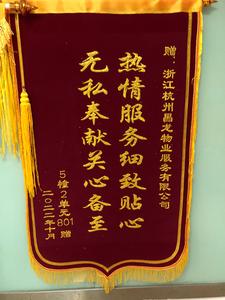 赠：浙江杭州昌龙物业服务有限公司
热情服务细致贴心
无私奉献关心备至
5幢2单元801 赠
二〇二二年十月